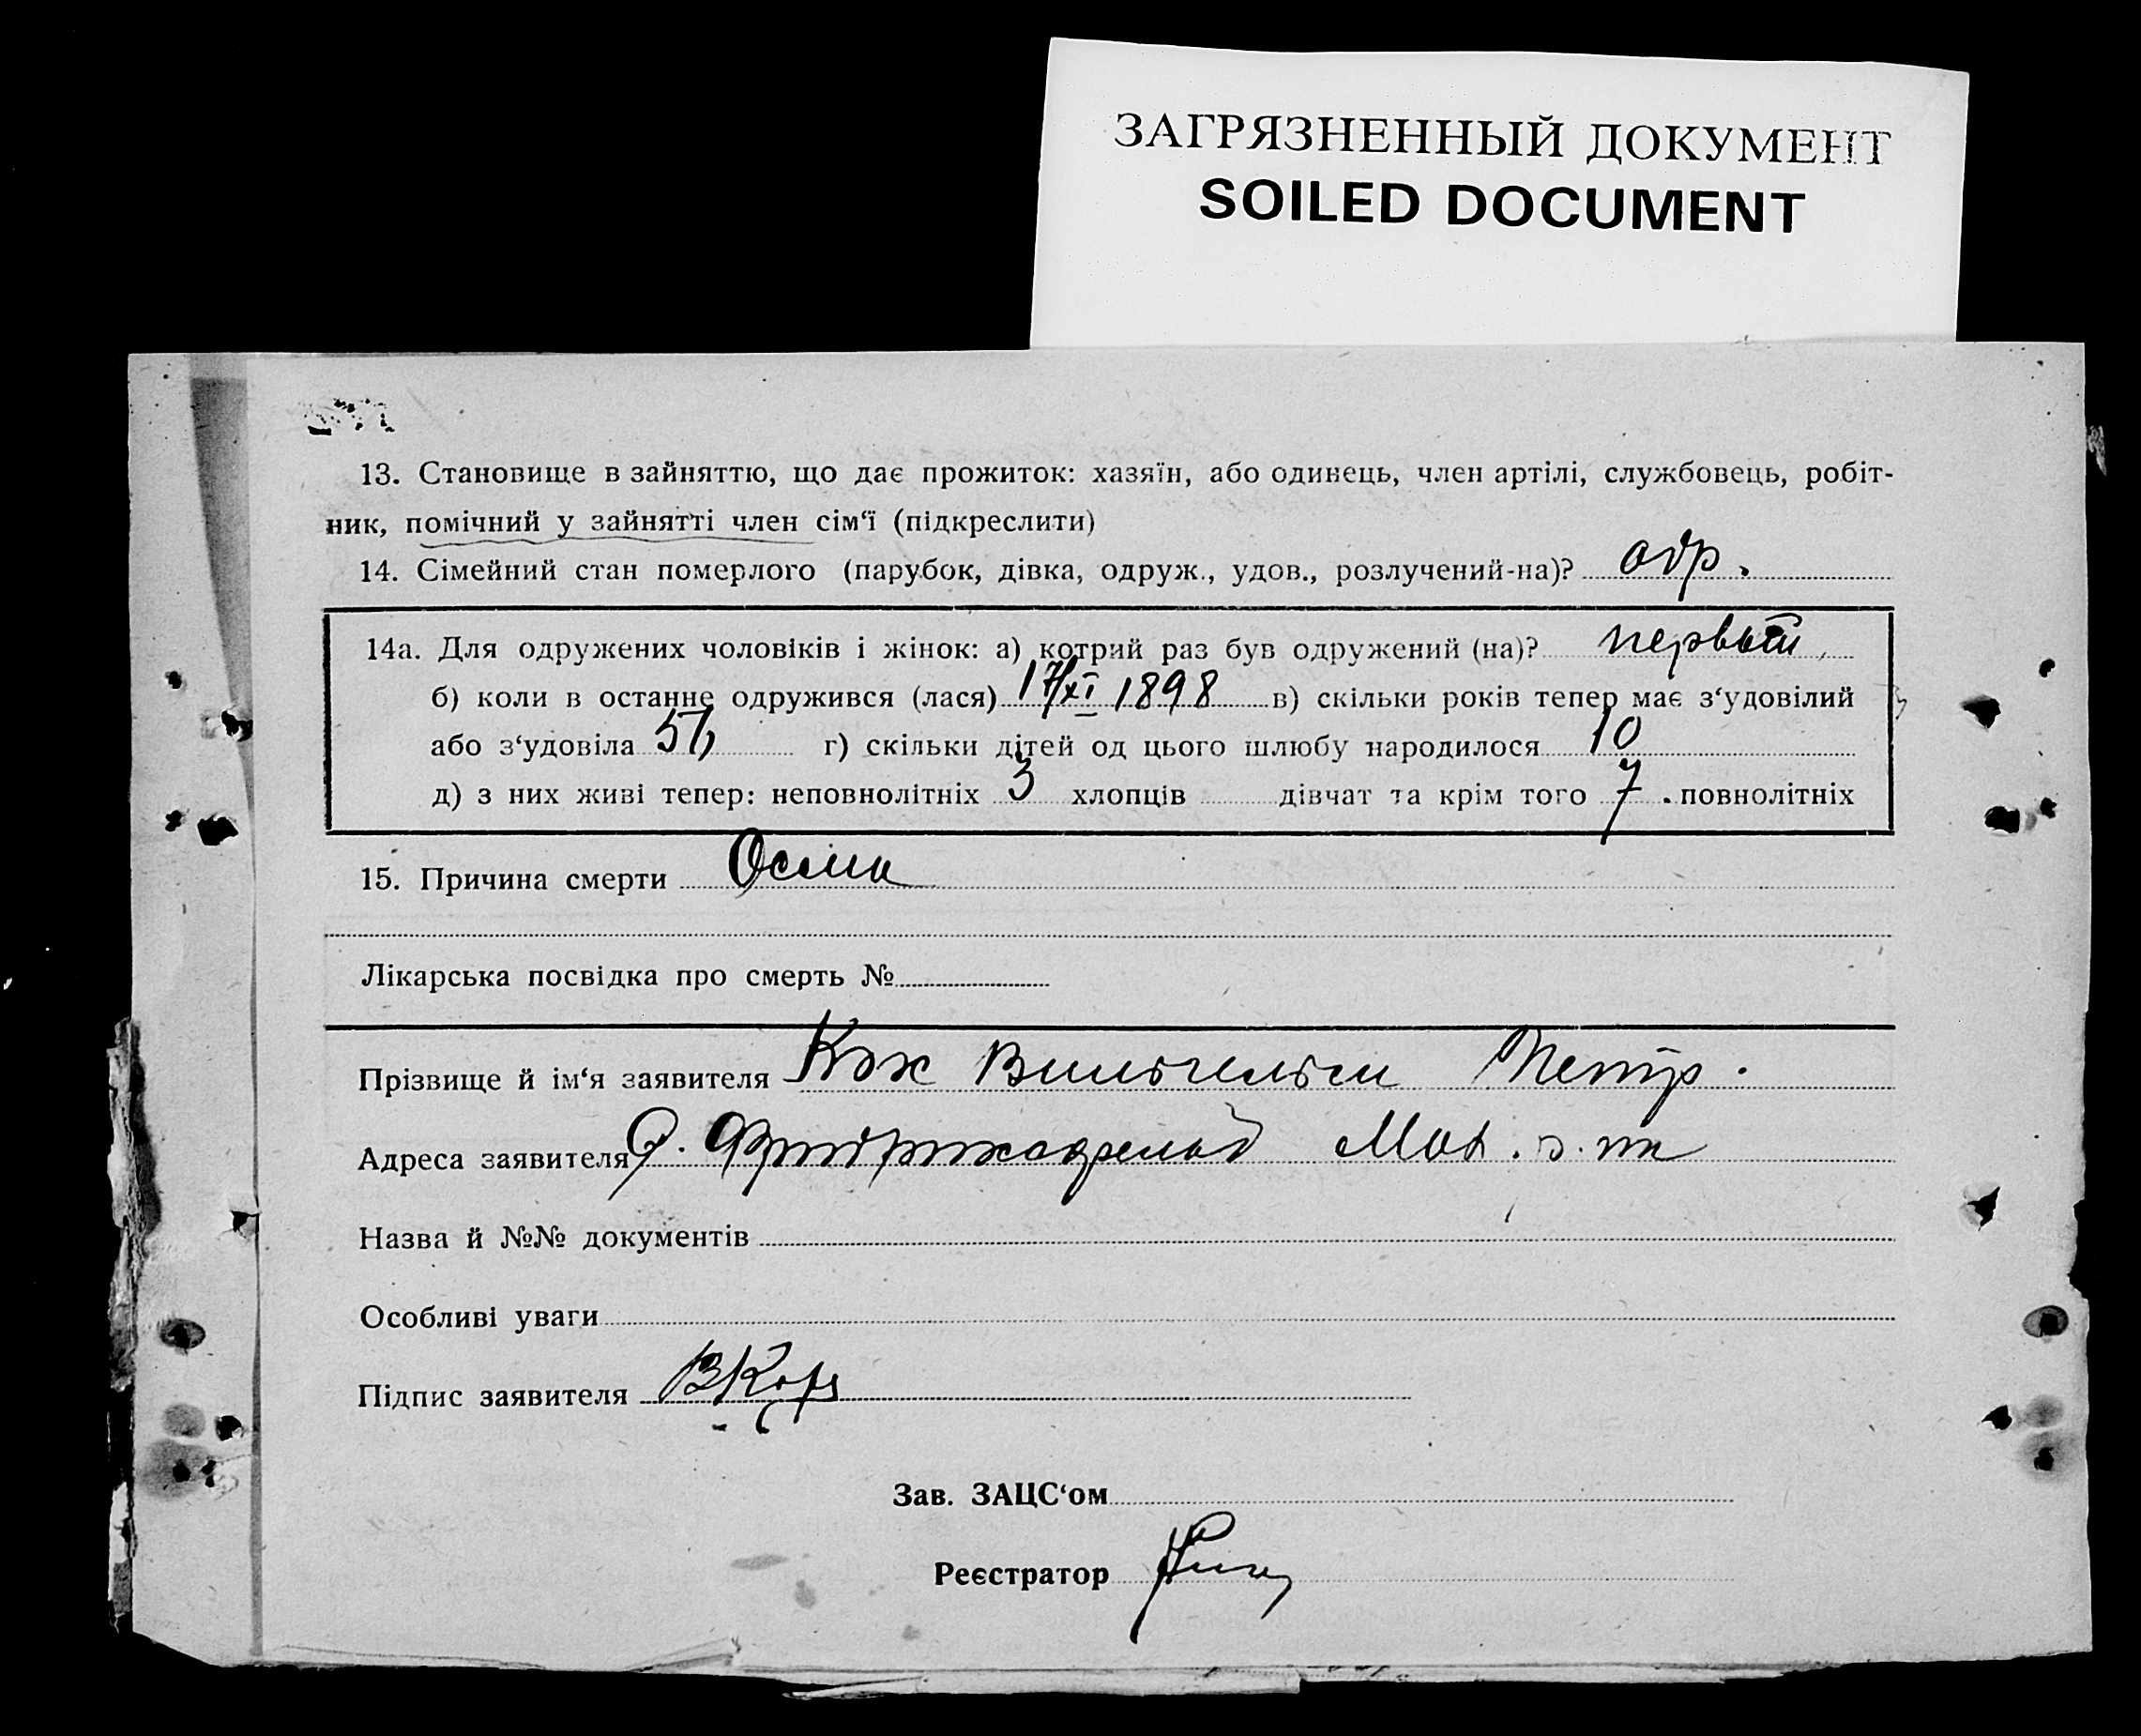 ЗАГРЯЗНЕННЫЙ ДОКУМЕНТ
SOILED DOCUMENT
13. Становище в зайняттю, що дає прожиток: хазяїн, або одинець, член артілі, службовець, робіт-
ник, помічний у зайнятті член сім‘ї (підкреслити)
14. Сімейний стан померлого (парубок, дівка, одруж., удов., розлучений-на)? одр.
14а. Для одружених чоловіків і жінок: а) котрий раз був одружений (на)? первый
б) коли в останнє одружився (лася) 17/XI 1898 в) скільки років тепер має з‘удовілий
або з‘удовіла г) скільки дітей од цього шлюбу народилося 10
д) з них живі тепер: неповнолітніх 3 хлопців дівчат та крім того 7 повнолітніх
15. Причина смерти
Лікарська посвідка про смерть №
Прізвище й ім‘я заявителя Кох Вильгельм Петр.
Адреса заявителя
Назва й №№ документів
Особливі уваги
Підпис заявителя
Зав. ЗАЦС‘ом
Реєстратор